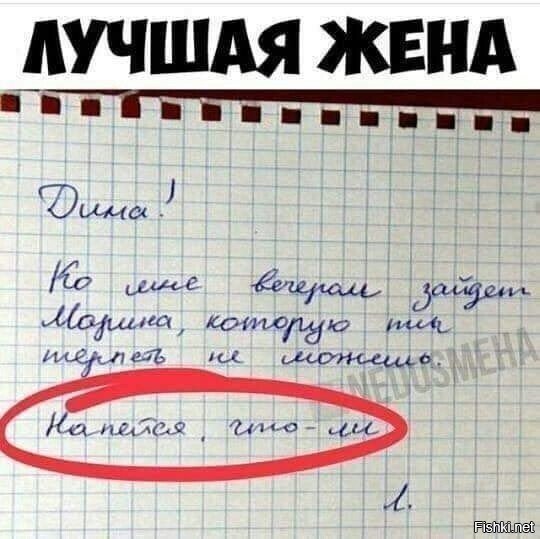 ЛУЧШАЯ ЖЕНА
Дима!
Ко мне вечером зайдет
Марина, которую ты
терпеть не можешь.
NEDUSMEHA
Напейся, что-ли
Л.
Fishki.net